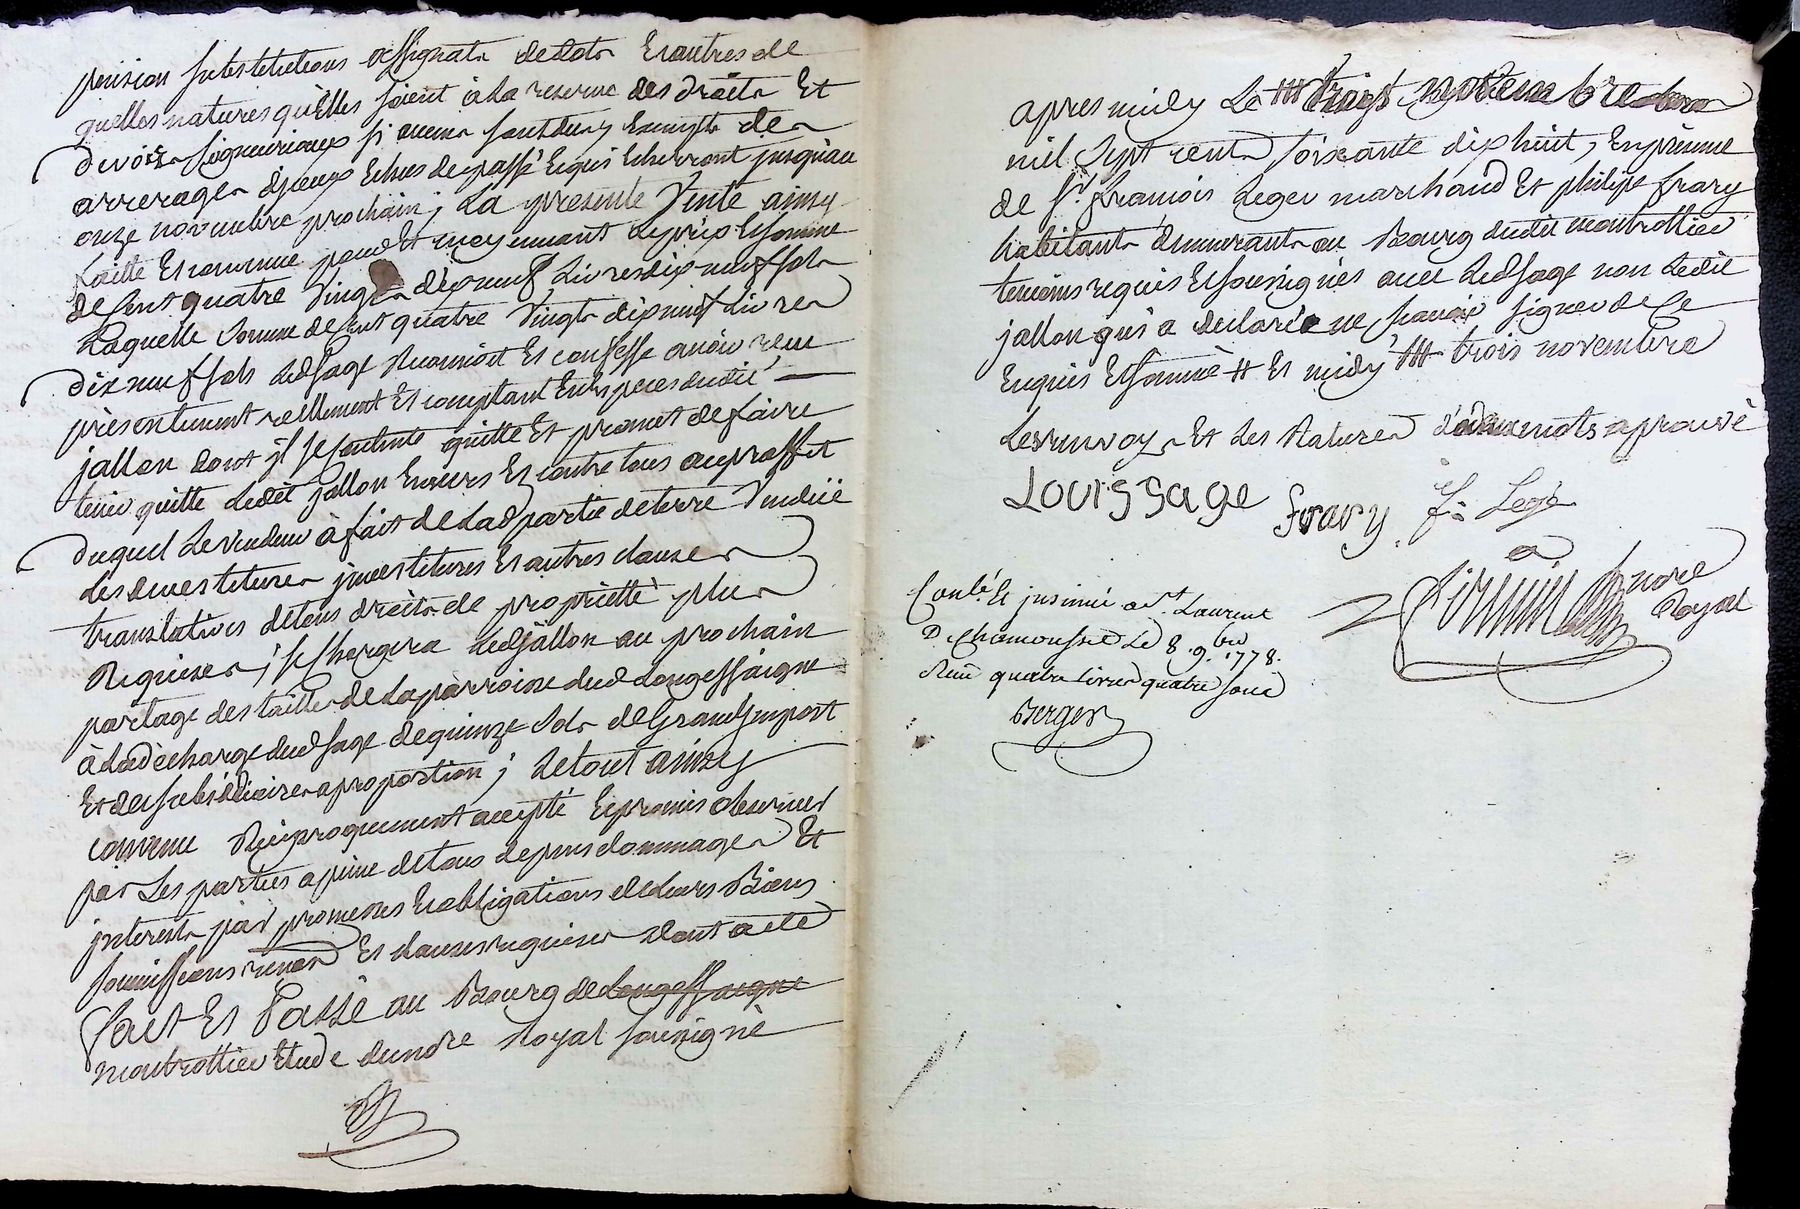 pension substitutions assignats de dots Et autres de
quelles natures qu'elles soient à la reserve des droits Et
devoirs seigneuriaux si aucuns sont dus Exempts des
arrerages d'iceux Echus de passé Et qui Echerront jusqu'au
onze novembre prochain ; La presente Vente ainsy
faitte Et convenue pour Et moyennant le prix Et somme
de Cent quatre Vingts dix neuf Livres dix neuf sols
Laquelle somme de Cent quatre Vingts dix neuf Livres
dix neuf sols Led Sage Reconnoit Et confesse avoir reçu
présentement reellement Et comptant En especes dudit
jallon dont il se Contente quitte Et promet de faire
tenir quitte Ledit jallon Envers Et contre tous au proffit
duquel Le vendeur à fait de Lad partie de terre Vendüe
les devestitures jnvestitures Et autres clauses
translatives de tous droits de proprietté plus
Requises ; se Chargera Led jallon au prochain
partage des tailles de La parroisse dud Longessaigne
à La décharge dud Sage de quinze sols de Grand jmpost
Et des subsidiaires a proportion ; Le tout ainsy
convenu Réciproquement accepté Et promis observer
par Les parties a peine de tous depens dommages Et
jnterests par promesses Et obligations de Leurs Biens
soumissions renon Et clauses requises dont acte
fait Et Passé au Bourg de Longessaigne
montrottier Etude du nore Royal soussigné
apres midy Le ttt trois novembre
mil Sept cents soixante dix huit, En presence
de Sr françois Leger marchand Et philipe frary
habitants demeurants au Bourg dudit montrottier
temoins requis Et soussignés avec Led Sage non Ledit
jallon qui a declaré ne sçavoir signer de Ce
Enquis Et sommé # Et midy ttt trois novembre
Les renvoys Et Les Ratures mots aprouvé
Louis Sage
frary
f. Legé
nore
Royal
Conlé Et jnsinué a St Laurent
De Chamousset Le 8 9bre 1778.
Recu quatre livres quatre sous
Berger